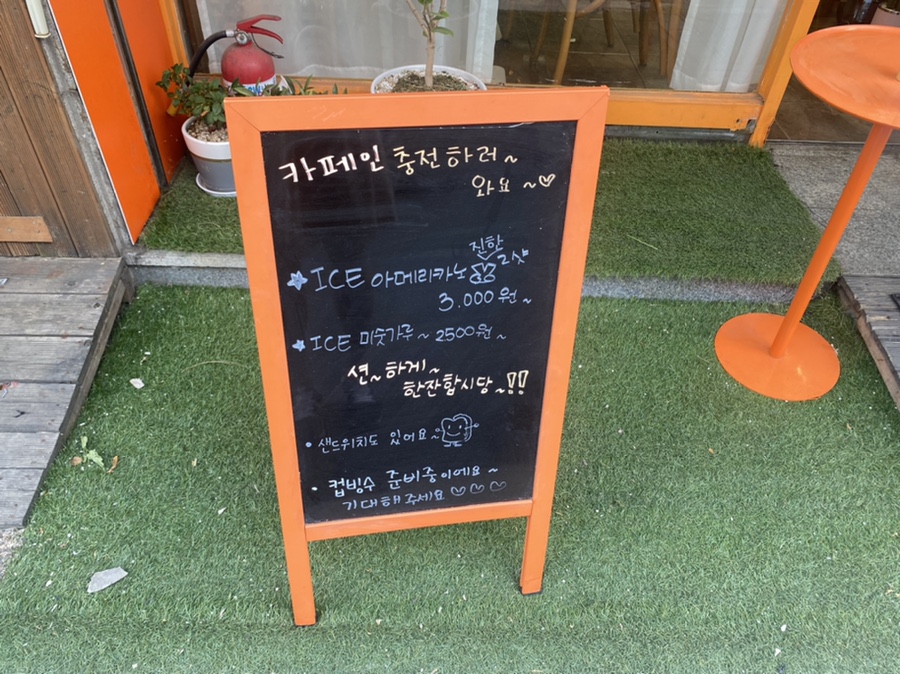 카페인 충전하러~
와요~♡
진한
☆ ICE 아메리카노 2샷
3.000원~
☆ ICE 미숫가루~ 2500원~
션~하게~
한잔합시당~!!
• 샌드위치도 있어요~
• 컵빙수 준비중이에요~
기대해주세요 ♡♡♡